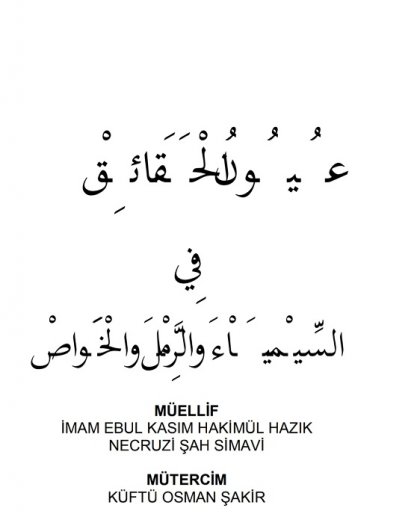 عُيُونُ الْحَقَائِقْ
فِي
السِّيْمِيَاْءَ وَالرَّمْلَ وَالْخَوَاصْ
MÜELLİF
İMAM EBUL KASIM HAKİMÜL HAZIK
NECRUZİ ŞAH SİMAVİ
MÜTERCİM
KÜFTÜ OSMAN ŞAKİR